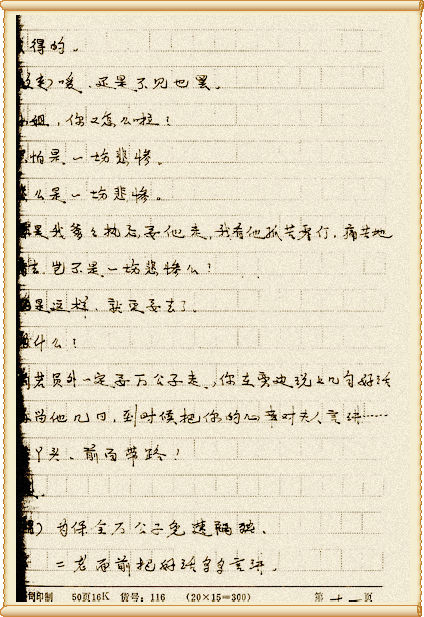 得的。
唉，还是不见也罢。
姐，你又怎么啦？
怕是一场悲惨。
么是一场悲惨。
是我爹爹执意要他走，我看他孤苦零仃，痛苦地
去，岂不是一场悲惨么？
是这样，就更要去了。
什么？
员外一定要万公子走，你在旁边说上几句好话
当他几日，到时候把你的心事对夫人言讲……
丫头，前面带路！
）为保全万公子免遭
二老面前把好话言讲。
印制 50页16K 货号：116 (20×15=300) 第十一页